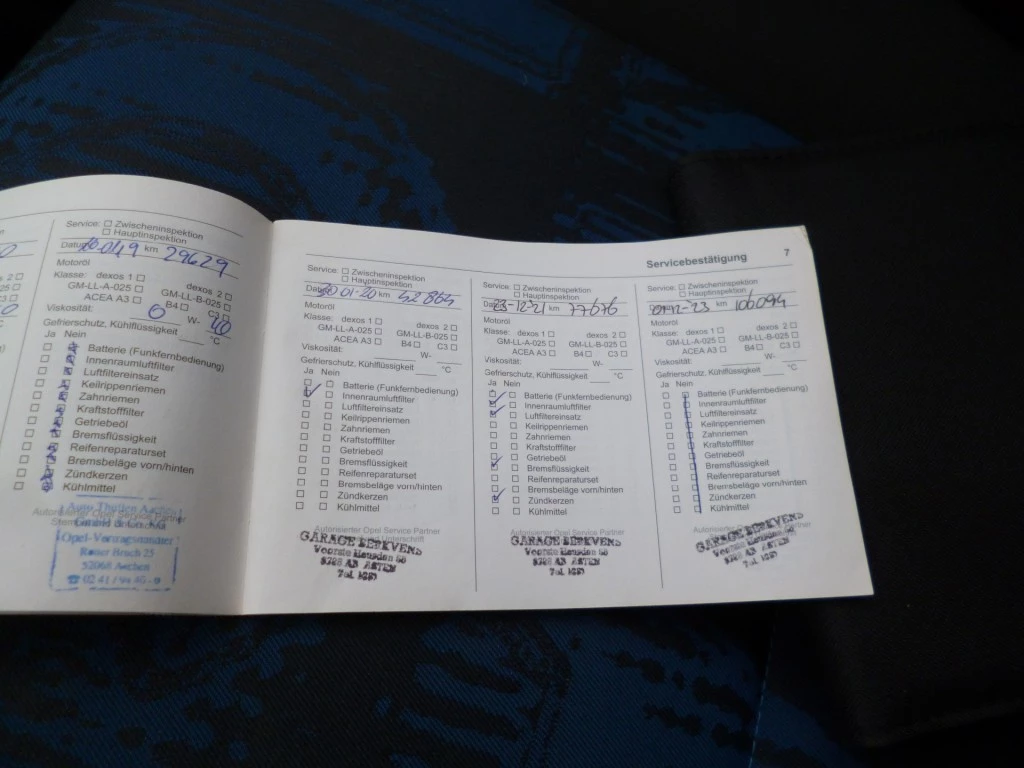 Service: Zwischeninspektion
Hauptinspektion
km 29629
Motoröl
Klasse: dexos 1 dexos 2
GM-LL-A-025 GM-LL-B-025
ACEA A3 B4 C3
Viskosität: 0 W- 40
Gefrierschutz, Kühlflüssigkeit °C
Ja Nein
Batterie (Funkfernbedienung)
Innenraumluftfilter
Luftfiltereinsatz
Keilrippenriemen
Zahnriemen
Kraftstofffilter
Getriebeöl
Bremsflüssigkeit
Reifenreparaturset
Bremsbeläge vorn/hinten
Zündkerzen
Kühlmittel
Autorisierter Opel Service Partner
Auto Thüllen Aachen
GmbH & Co. KG
Opel-Vertragshändler
52068 Aachen
Servicebestätigung 7
Service: Zwischeninspektion
Hauptinspektion
Datum 01-20 km
Motoröl
Klasse: dexos 1 dexos 2
GM-LL-A-025 GM-LL-B-025
ACEA A3 B4 C3
Viskosität: W-
Gefrierschutz, Kühlflüssigkeit °C
Ja Nein
Batterie (Funkfernbedienung)
Innenraumluftfilter
Luftfiltereinsatz
Keilrippenriemen
Zahnriemen
Kraftstofffilter
Getriebeöl
Bremsflüssigkeit
Reifenreparaturset
Bremsbeläge vorn/hinten
Zündkerzen
Kühlmittel
Autorisierter Opel Service Partner
GARAGE BERKVENS
Service: Zwischeninspektion
Hauptinspektion
23-12-21 km 77676
Motoröl
Klasse: dexos 1 dexos 2
GM-LL-A-025 GM-LL-B-025
ACEA A3 B4 C3
Viskosität: W-
Gefrierschutz, Kühlflüssigkeit °C
Ja Nein
Batterie (Funkfernbedienung)
Innenraumluftfilter
Luftfiltereinsatz
Keilrippenriemen
Zahnriemen
Kraftstofffilter
Getriebeöl
Bremsflüssigkeit
Reifenreparaturset
Bremsbeläge vorn/hinten
Zündkerzen
Kühlmittel
Autorisierter Opel Service Partner
GARAGE BERKVENS
Service: Zwischeninspektion
Hauptinspektion
12-23 km 106094
Motoröl
Klasse: dexos 1 dexos 2
GM-LL-A-025 GM-LL-B-025
ACEA A3 B4 C3
Viskosität: W-
Gefrierschutz, Kühlflüssigkeit °C
Ja Nein
Batterie (Funkfernbedienung)
Innenraumluftfilter
Luftfiltereinsatz
Keilrippenriemen
Zahnriemen
Kraftstofffilter
Getriebeöl
Bremsflüssigkeit
Reifenreparaturset
Bremsbeläge vorn/hinten
Zündkerzen
Kühlmittel
Autorisierter Opel Service Partner
GARAGE BERKVENS